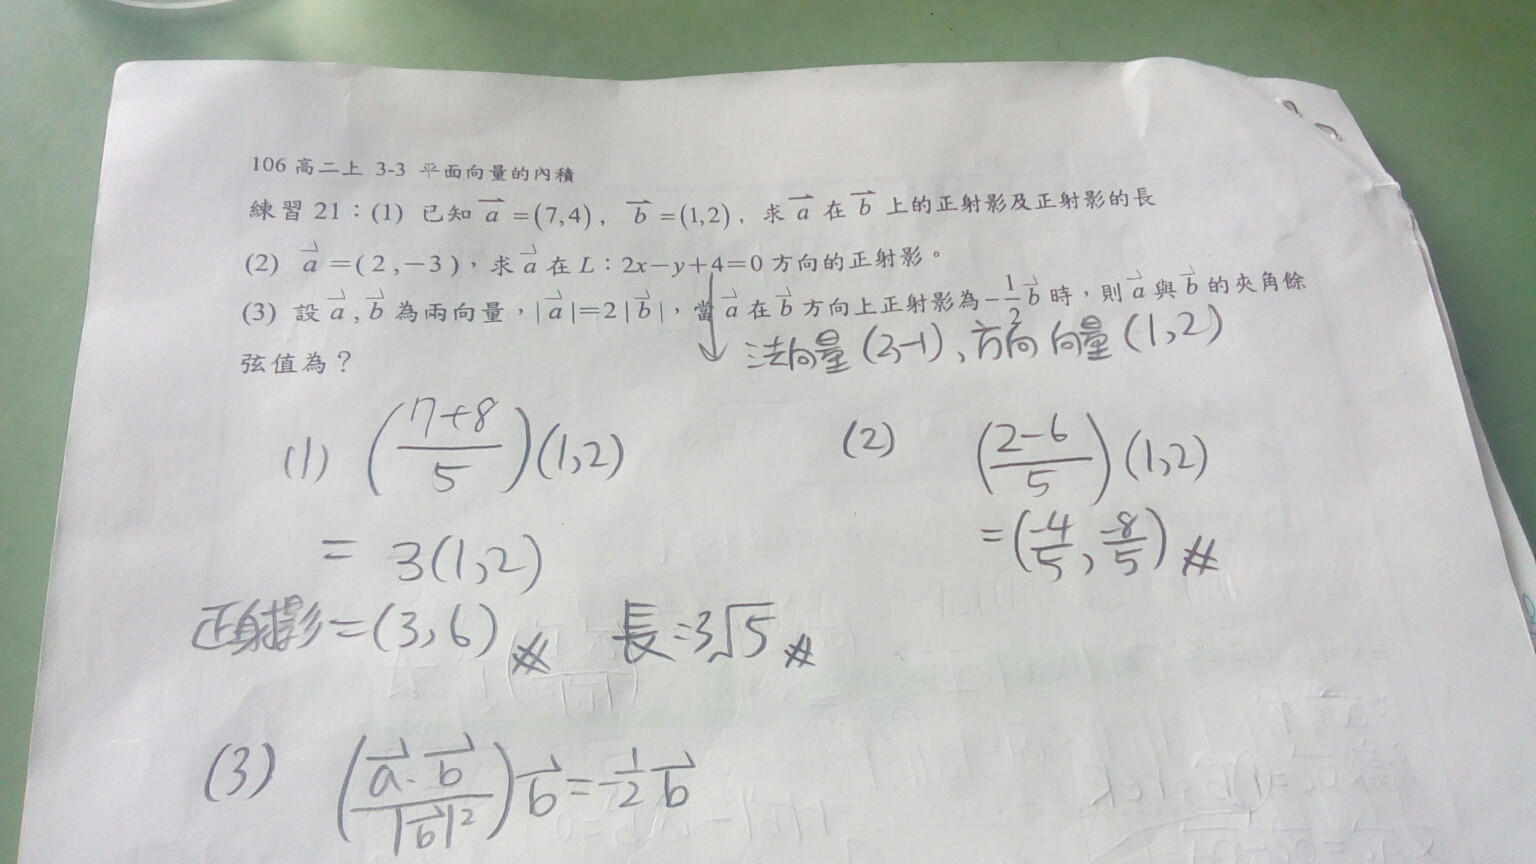 106 高二上 3-3 平面向量的內積
練習21：(1) 已知 a⃗ =(7,4)，b⃗ =(1,2)，求 a⃗ 在 b⃗ 上的正射影及正射影的長
(2) a⃗ =(2,−3)，求 a⃗ 在 L：2x−y+4=0 方向的正射影。
(3) 設 a⃗ , b⃗ 為兩向量，|a⃗|=2|b⃗|，當 a⃗ 在 b⃗ 方向上正射影為 −1/2 b⃗ 時，則 a⃗ 與 b⃗ 的夾角餘
弦值為？
法向量(2,-1)、方向向量(1,2)
(1) ((7+8)/5)(1,2)
= 3(1,2)
正射影=(3,6) #
長=3√5 #
(2) ((2-6)/5)(1,2)
=(-4/5, -8/5) #
(3) ((a⃗·b⃗)/|b⃗|²) b⃗ = -1/2 b⃗